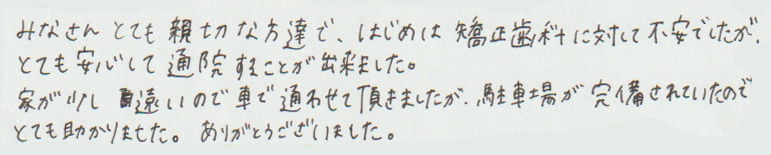 みなさん とても 親切な方達で、はじめは 矯正歯科に対して不安でしたが、
とても安心して 通院することが出来ました。
家が少し 遠いので車で 通わせて頂きましたが、駐車場が 完備されていたので
とても助かりました。ありがとうございました。